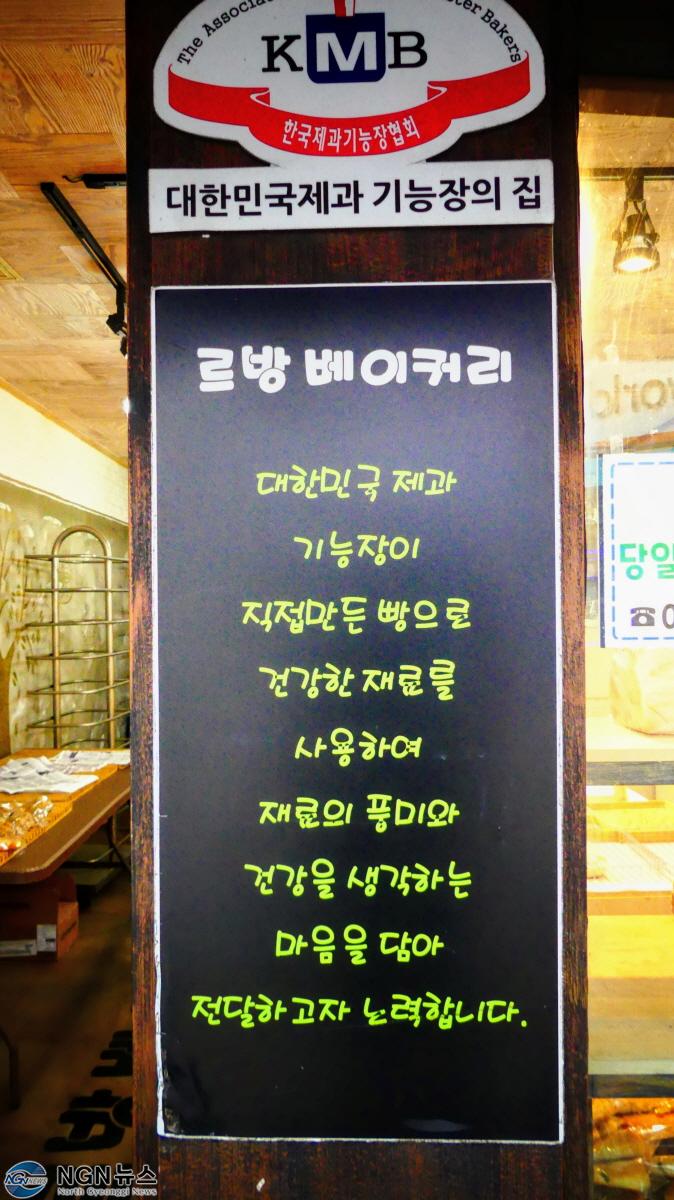 The Associa
ster Bakers
KMB
한국제과기능장협회
대한민국제과 기능장의 집
르방 베이커리
대한민국 제과
기능장이
직접만든 빵으로
건강한 재료를
사용하여
재료의 풍미와
건강을 생각하는
마음을 담아
전달하고자 노력합니다.
당일
☎0
NGN뉴스
North Gyeonggi News